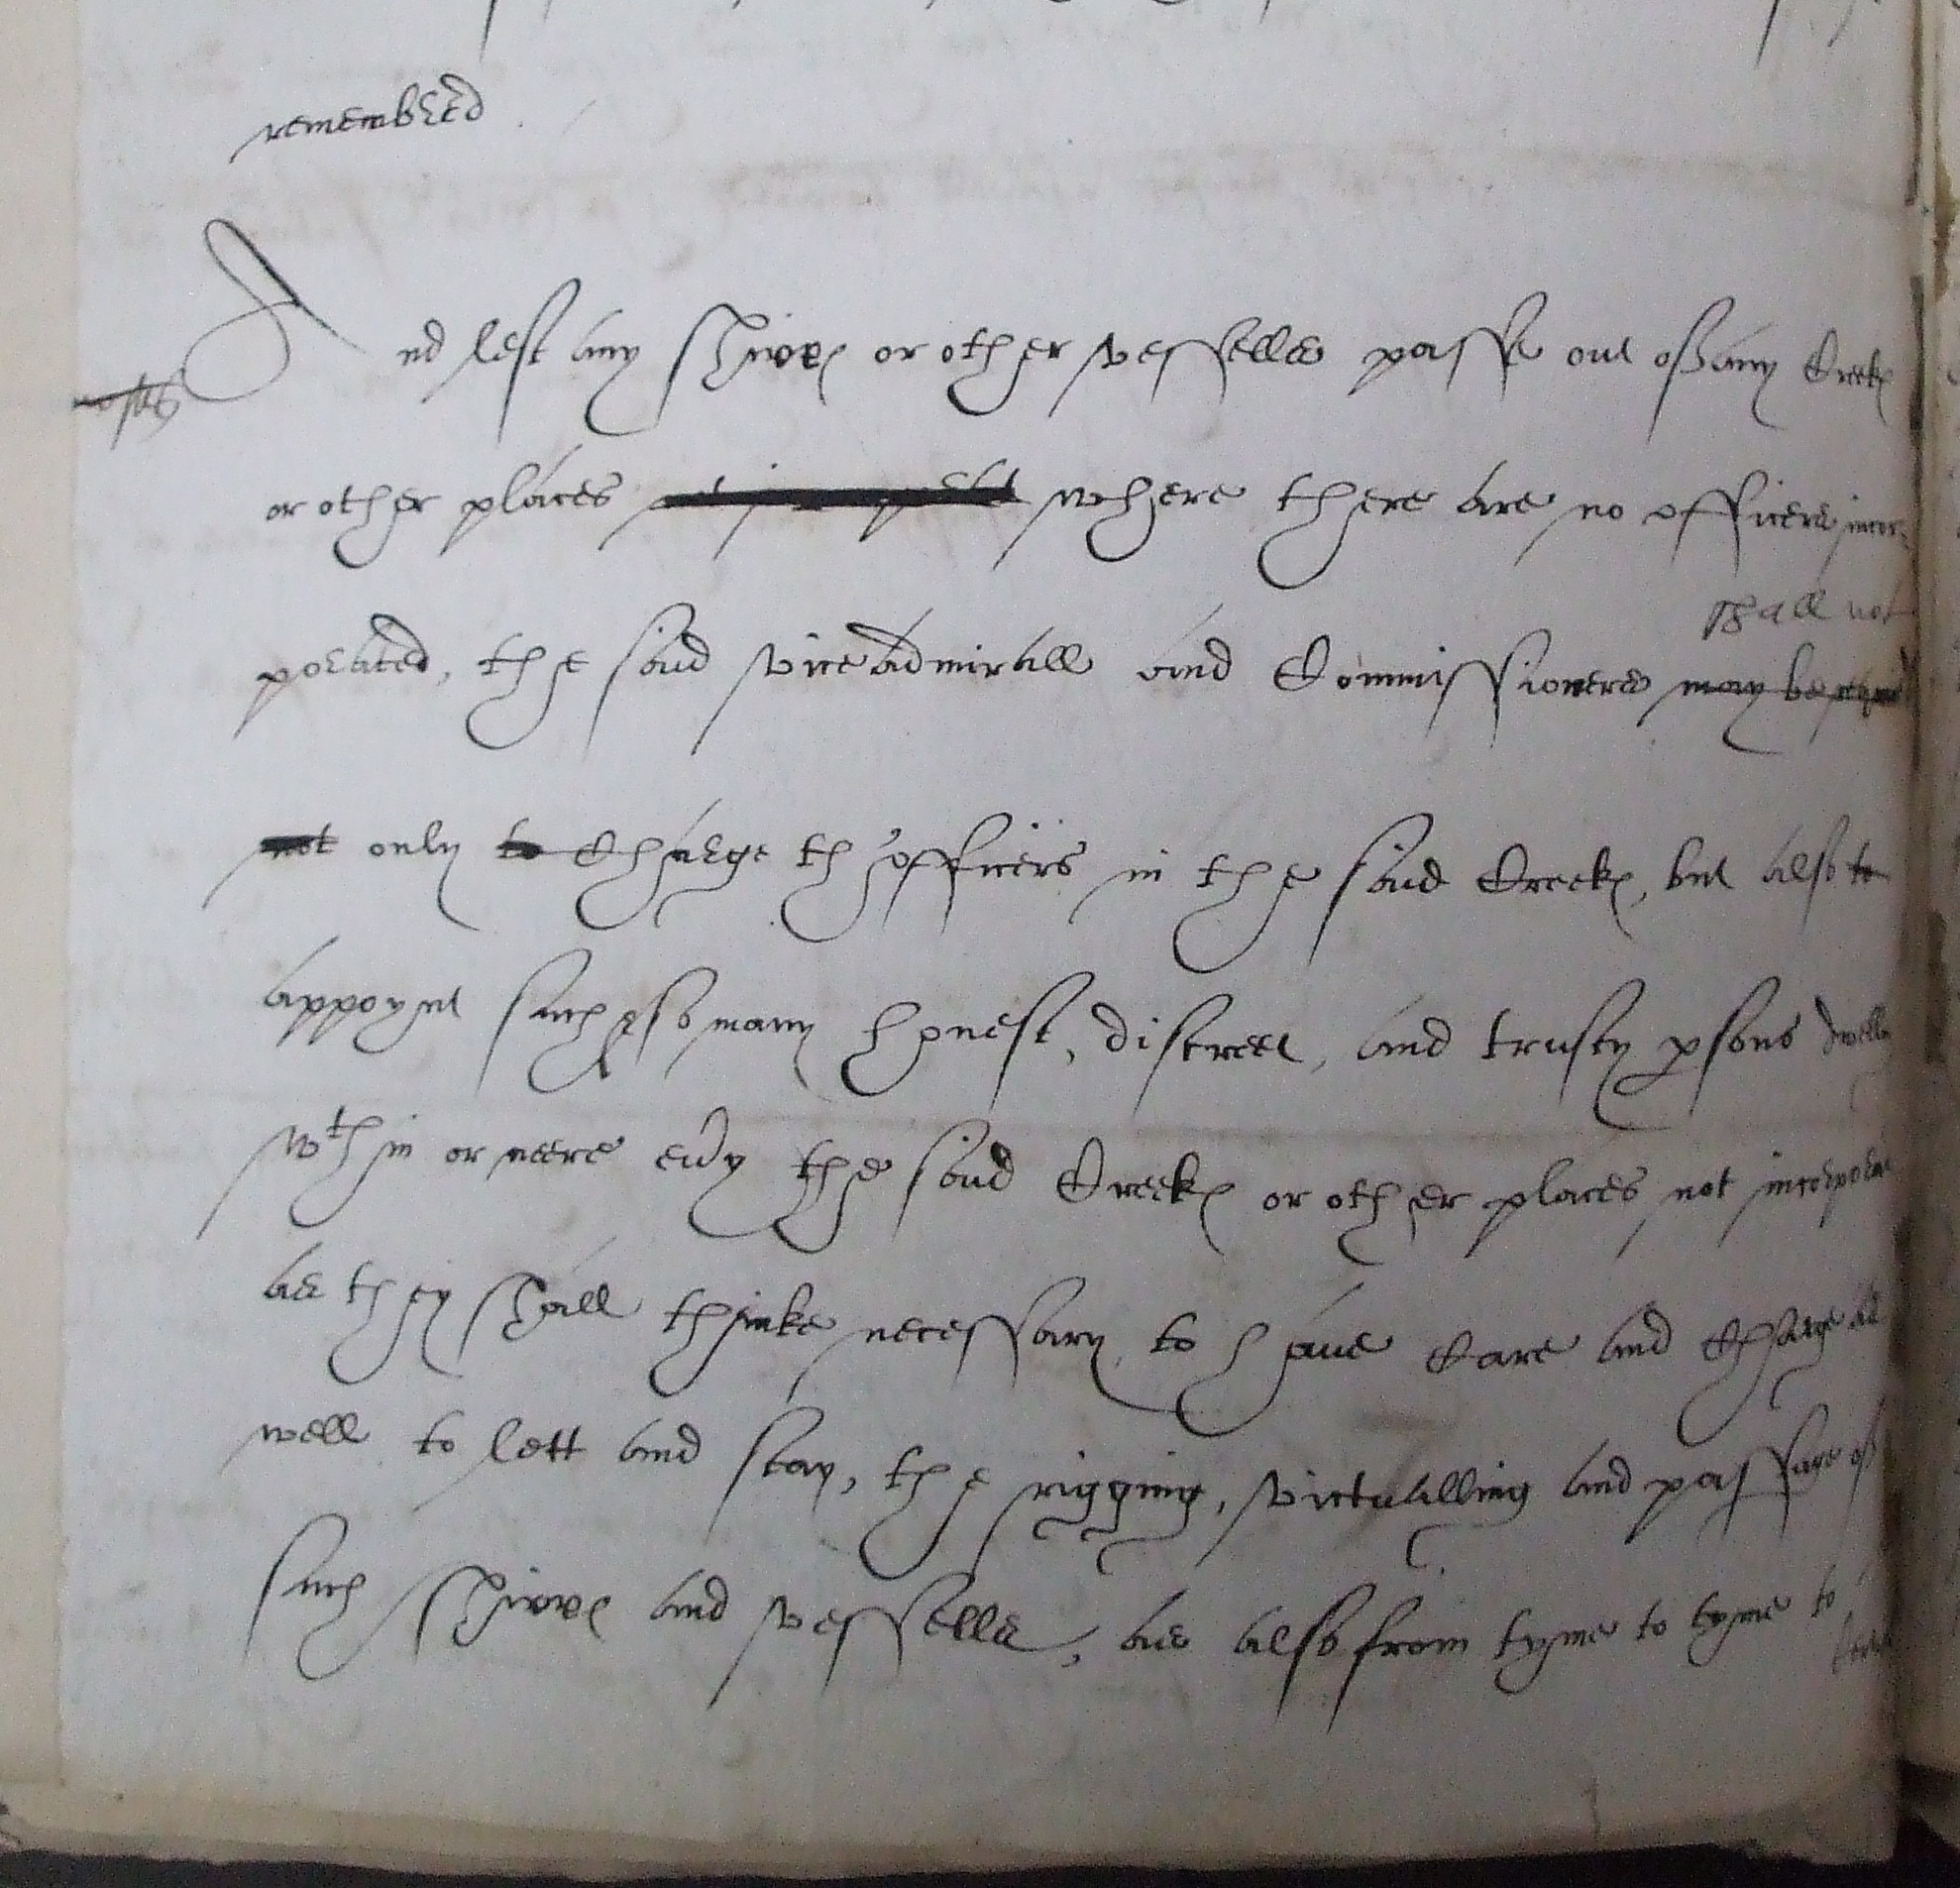 remembred
And lest any Shippes or other vesselles passe out of any Creekes
or other places where there are no officers incor-
shall not
porated, the said viceadmirall and Commissioners may be
not only to Charge th'officers in the said Creekes, but also to
appoynt such & so many honest, discreet, and trusty psons
wth in or neere eu'y the said Creekes or other places not incorporat
as they shall thinke necessary, to haue Care and Charge as
well to lett and stay, the rigging, victualling and passage of
such Shippes and vesselles, as also from tyme to tyme to